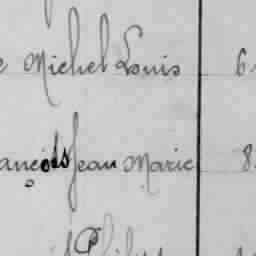 e Michel Louis 6
ançois Jean Marie 8